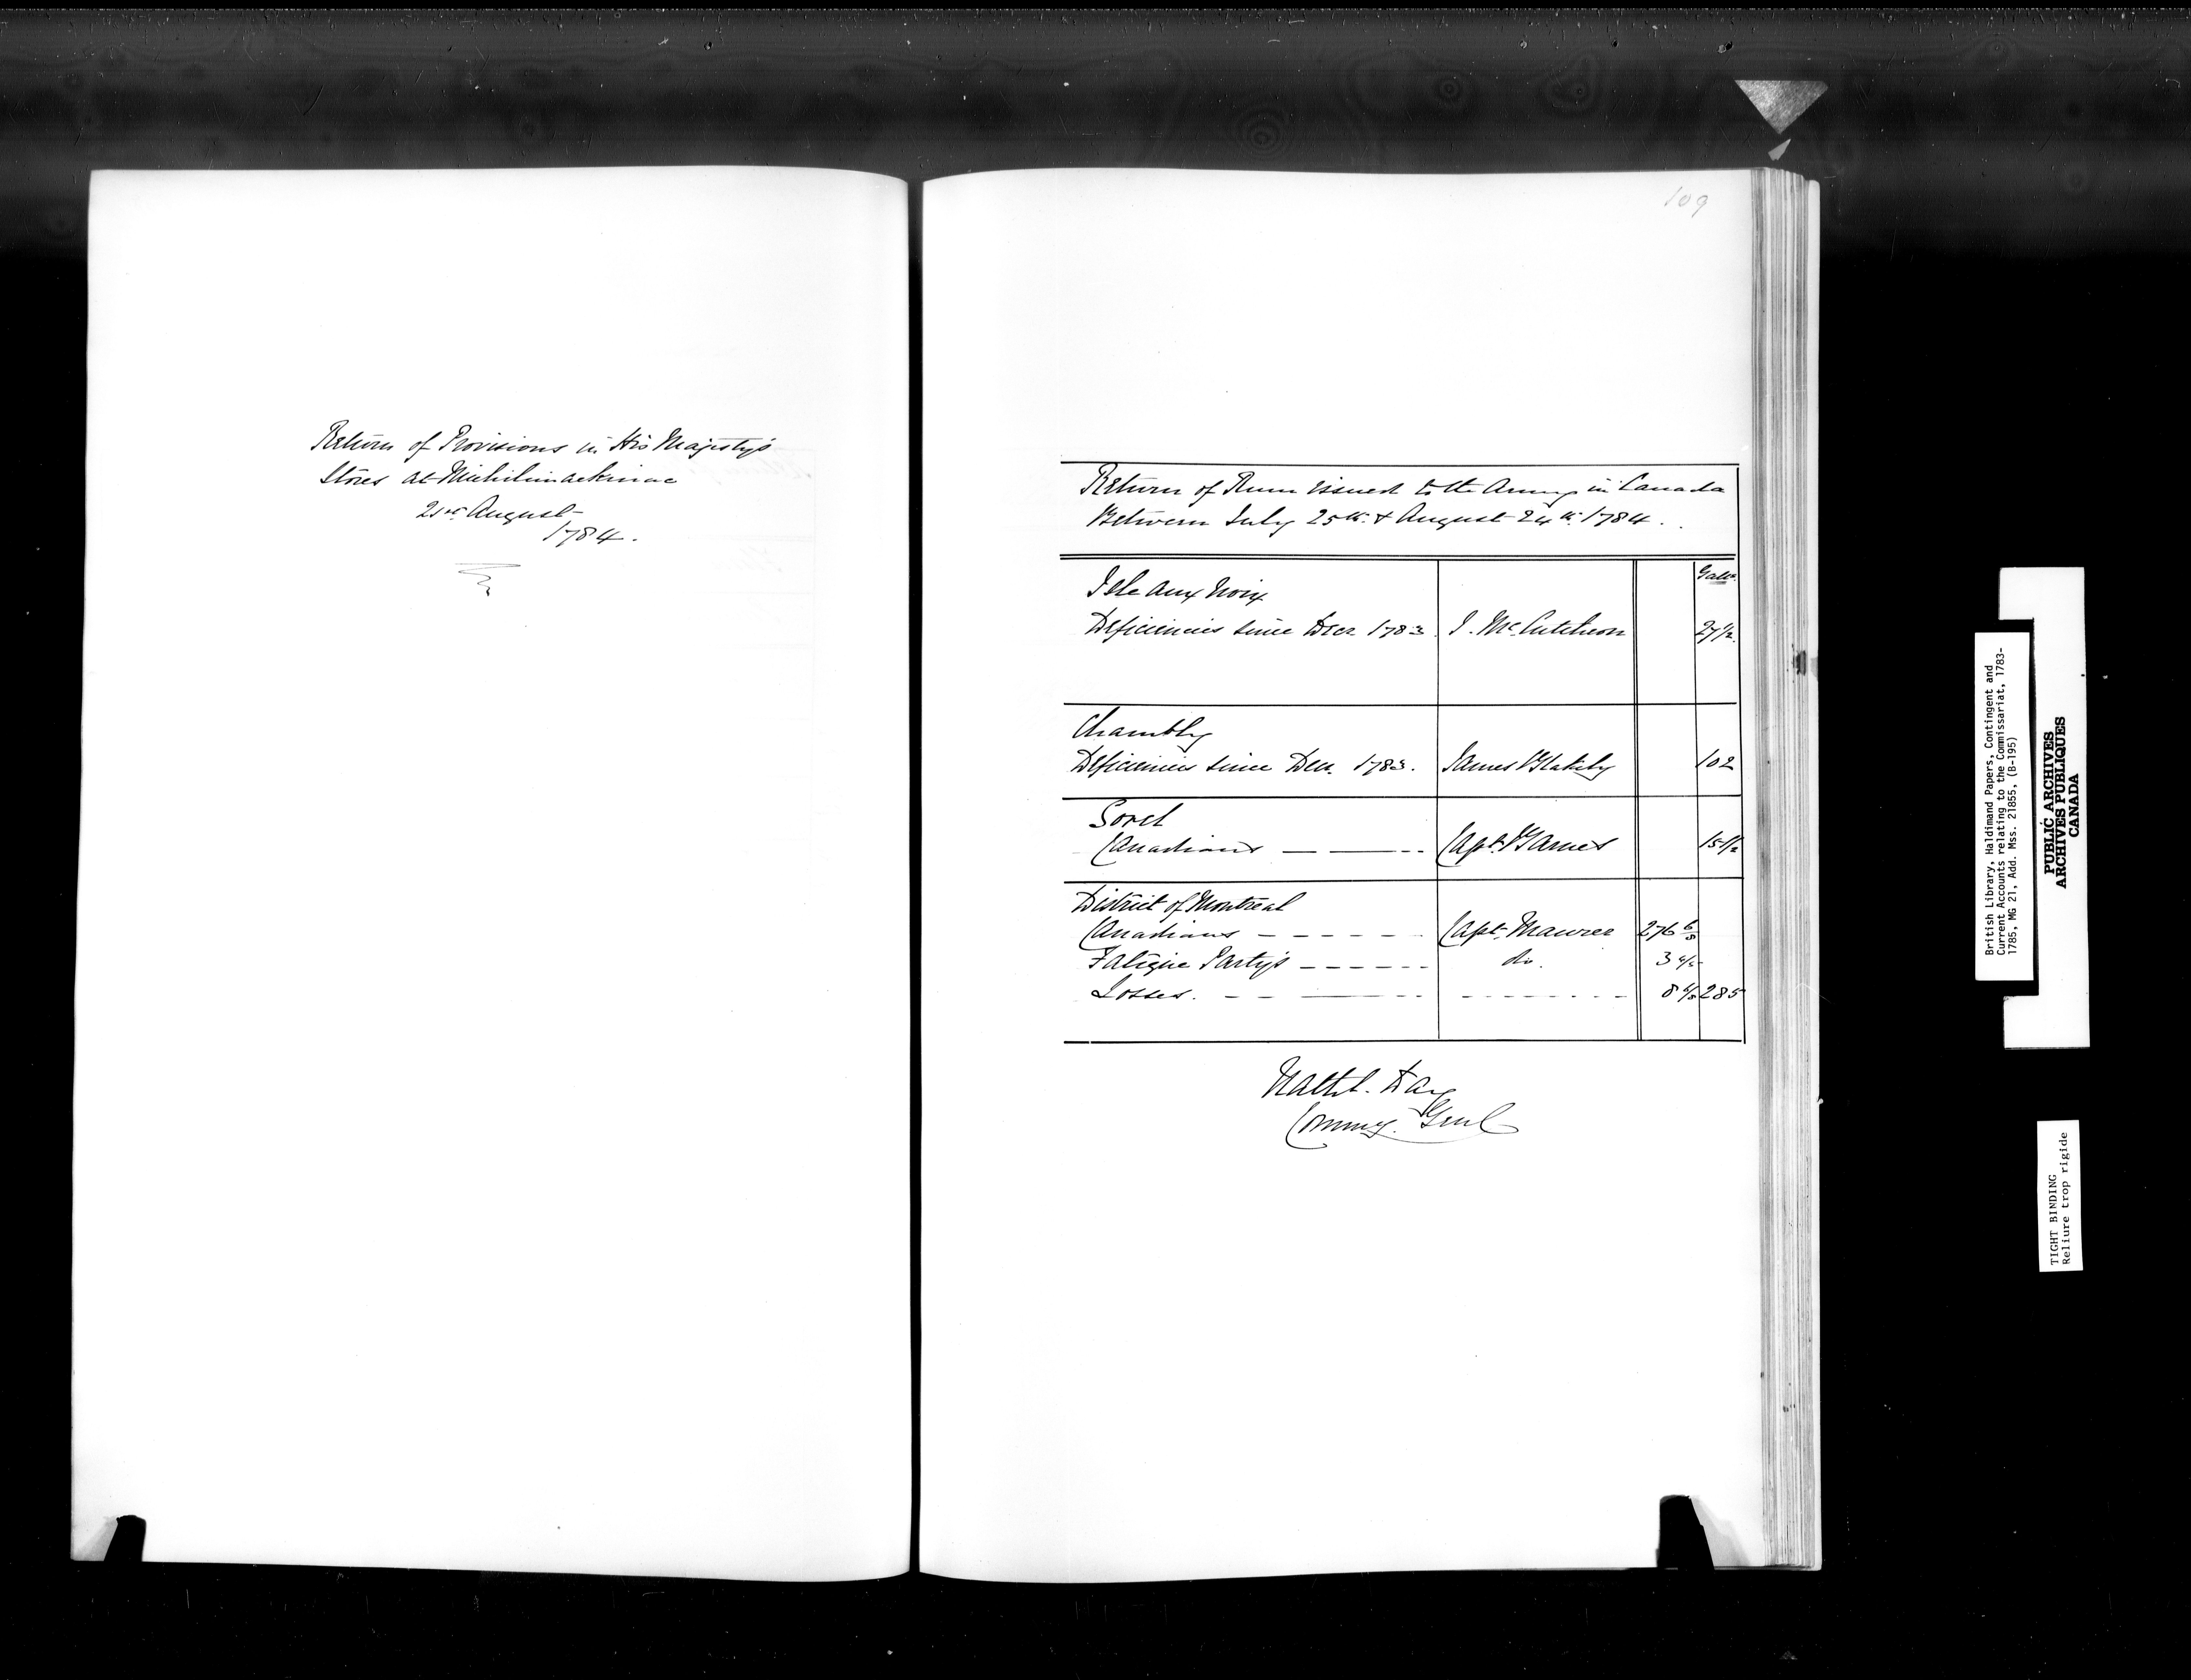 Return of Provisions in His Majesty's
Stores at Michilimackinac
21st August
1784.
109
Return of Rum issued to the Army in Canada
Between July 25th. & August 24th. 1784.
Galls.
Isle aux Noix
Deficiencies since Decr 1783. J. McCutcheon 27 1/2.
Chambly
Deficiencies since Decr. 1783. James Blakely 102
Sorel
Canadians Capt. Barnes 15 1/2
District of Montreal
Canadians Capt. Maurer 276
Fatigue Party's do. 3
Losses. 8 285
Nathl. Day
Commy. Genl
British Library, Haldimand Papers, Contingent and
Current Accounts relating to the Commissariat, 1783-
1785, MG 21, Add. Mss. 21855, (B-195)
PUBLIC ARCHIVES
ARCHIVES PUBLIQUES
CANADA
TIGHT BINDING
Reliure trop rigide